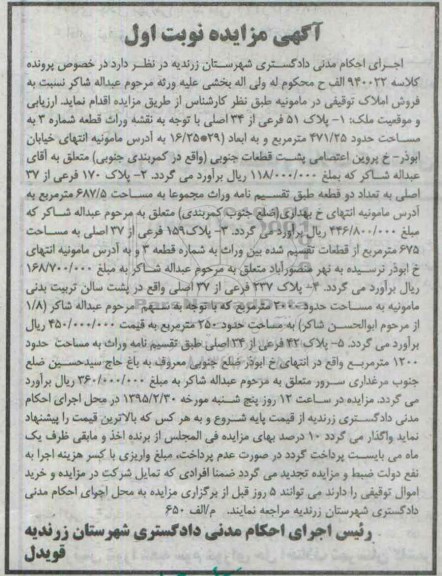 آگهی مزایده نوبت اول
اجرای احکام مدنی دادگستری شهرستان زرندیه در نظر دارد در خصوص پرونده
کلاسه ۹۴۰۰۲۲ الف ح محکوم له ولی اله بخشی علیه ورثه مرحوم عبداله شاکر نسبت به
فروش املاک توقیفی در مامونیه طبق نظر کارشناس از طریق مزایده اقدام نماید. ارزیابی
و موقعیت ملک: ۱- پلاک ۵۱ فرعی از ۳۴ اصلی با توجه به نقشه وراث قطعه شماره ۳ به
مساحت حدود ۴۷۱/۲۵ مترمربع و به ابعاد (۲۹*۱۶/۲۵ به آدرس مامونیه انتهای خیابان
ابوذر- خ پروین اعتصامی پشت قطعات جنوبی (واقع در کمربندی جنوبی) متعلق به آقای
عبداله شاکر که بمبلغ ۱۱۸/۰۰۰/۰۰۰ ریال برآورد می گردد. ۲- پلاک ۱۷۰ فرعی از ۳۷
اصلی به تعداد دو قطعه طبق تقسیم نامه وراث مجموعا به مساحت ۶۸۷/۵ مترمربع به
آدرس مامونیه انتهای خ بهداری(ضلع جنوب کمربندی) متعلق به مرحوم عبداله شاکر که
مبلغ ۴۴۶/۸۰۰/۰۰۰ ریال برآورد می گردد. ۳- پلاک۱۵۹ فرعی از ۳۷ اصلی به مساحت
۶۷۵ مترمربع از قطعات تقسیم شده بین وراث به شماره قطعه ۳ و به آدرس مامونیه انتهای
خ ابوذر نرسیده به نهر منصورآباد متعلق به مرحوم عبداله شاکر به مبلغ ۱۶۸/۷۰۰/۰۰۰
ریال برآورد می گردد. ۴- پلاک ۲۳۷ فرعی از ۳۷ اصلی واقع در پشت سالن تربیت بدنی
مامونیه به مساحت حدود ۲۰۰۰ مترمربع که با توجه به سهم مرحوم عبداله شاکر (۱/۸
از مرحوم ابوالحسن شاکر) به مساحت حدود ۲۵۰ مترمربع به قیمت ۴۵۰/۰۰۰/۰۰۰ ریال
برآورد می گردد. ۵- پلاک ۴۲ فرعی از ۳۴ اصلی طبق تقسیم نامه وراث به مساحت حدود
۱۲۰۰ مترمربع واقع در انتهای خ ابوذر ضلع جنوبی معروف به باغ حاج سیدحسین ضلع
جنوب مرغداری سرور متعلق به مرحوم عبداله شاکر به مبلغ ۳۶۰/۰۰۰/۰۰۰ ریال برآورد
می گردد. مزایده در ساعت ۱۲ روز پنج شنبه مورخه ۱۳۹۵/۲/۳۰ در محل اجرای احکام
مدنی دادگستری زرندیه از قیمت پایه شروع و به هر کس که بالاترین قیمت را پیشنهاد
نماید واگذار می گردد ۱۰ درصد بهای مزایده فی المجلس از برنده اخذ و مابقی ظرف یک
ماه می بایست پرداخت گردد در صورت عدم پرداخت، مبلغ واریزی با کسر هزینه اجرا به
نفع دولت ضبط و مزایده تجدید می گردد ضمنا افرادی که تمایل شرکت در مزایده و خرید
اموال توقیفی را دارند می توانند ۵ روز قبل از برگزاری مزایده به محل اجرای احکام مدنی
دادگستری شهرستان زرندیه مراجعه نمایند. م/الف ۶۵۰
رئیس اجرای احکام مدنی دادگستری شهرستان زرندیه
قویدل